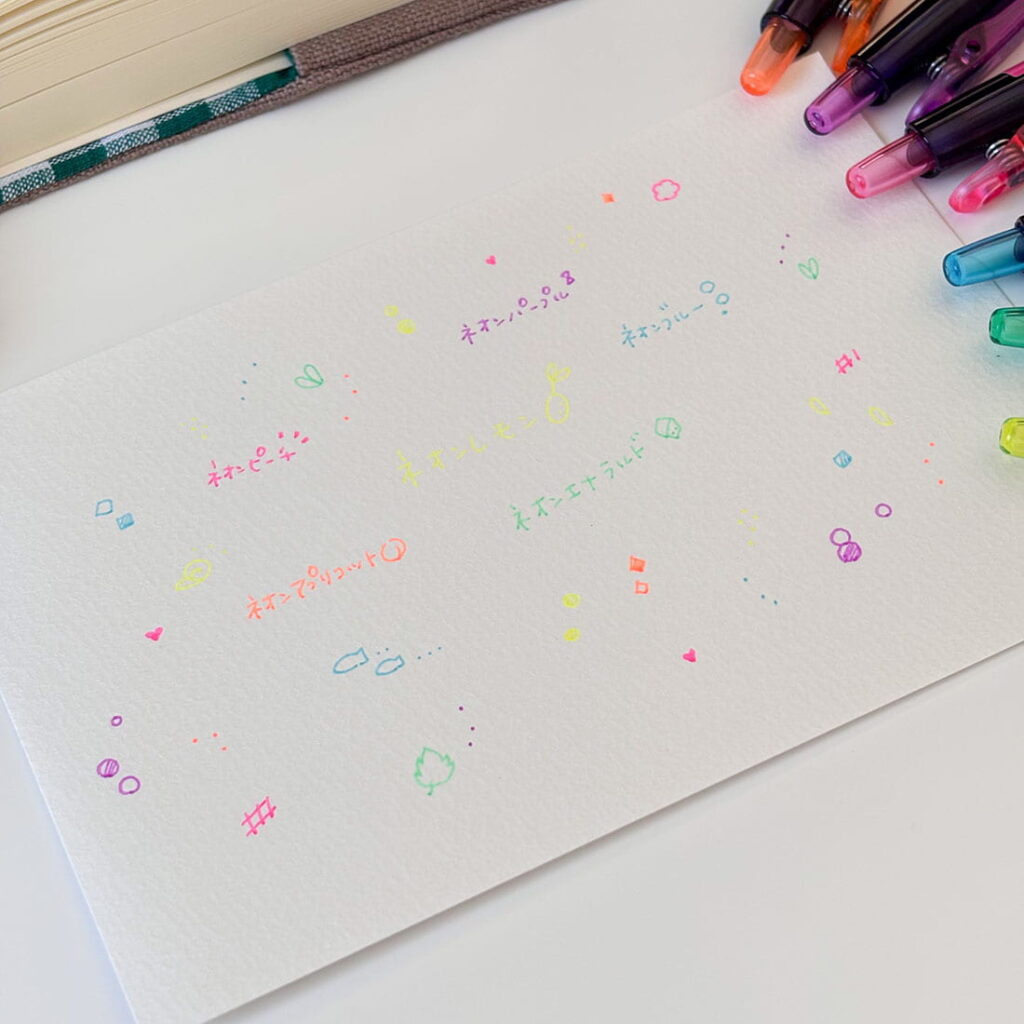 ネオンパープル
ネオンブルー
ネオンピーチ
ネオンレモン
ネオンエナラルド
ネオンアプリコット